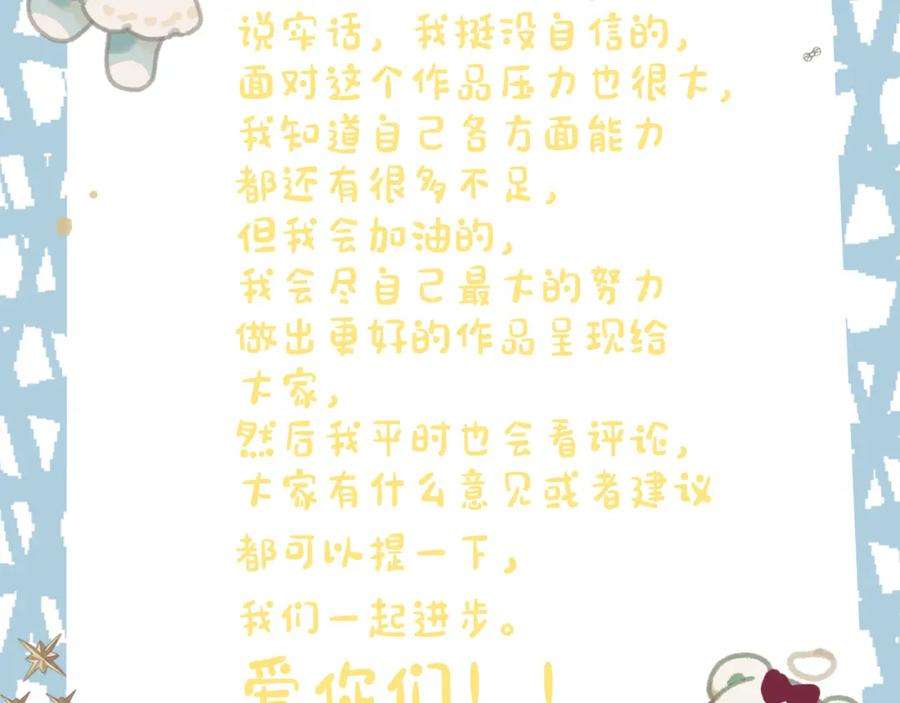 说实话，我挺没自信的，
面对这个作品压力也很大，
我知道自己各方面能力
都还有很多不足，
但我会加油的，
我会尽自己最大的努力
做出更好的作品呈现给
大家，
然后我平时也会看评论，
大家有什么意见或者建议
都可以提一下，
我们一起进步。
爱你们！！